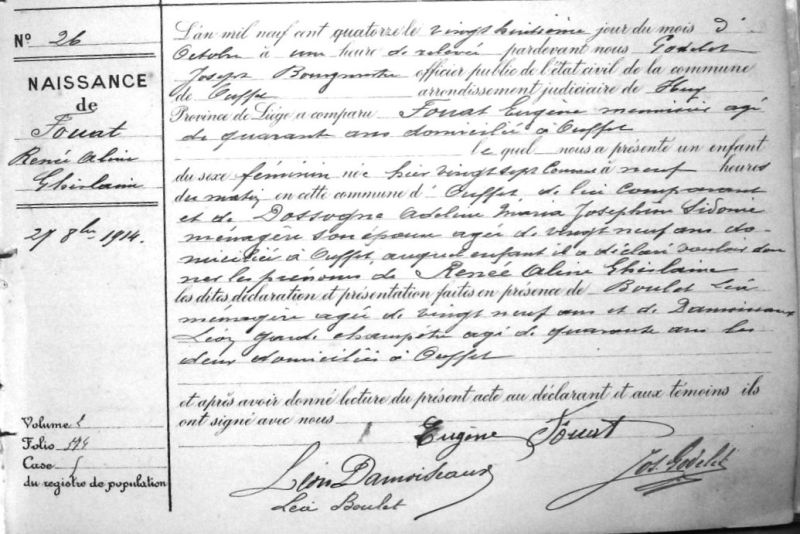 N° 26
NAISSANCE
de
Fouat
Renée Aline
Ghislaine
27 8bre 1914.
Volume
Folio
Case
du registre de population
L'an mil neuf cent quatorze le vingt huitième jour du mois d'
Octobre à une heure de relevée pardevant nous Godelet
Joseph Bourgmestre officier public de l'état civil de la commune
de Ouffet arrondissement judiciaire de Huy
Province de Liége a comparu Fouat Eugène menuisier agé
de quarante ans domicilié à Ouffet
lequel nous a présenté un enfant
du sexe féminin née hier vingt sept courant à neuf heures
du matin en cette commune d'Ouffet, de lui comparant
et de Dossogne Adeline Maria Joséphine Sidonie
ménagère son épouse agée de vingt neuf ans do-
miciliée à Ouffet, auquel enfant il a déclaré vouloir don
ner les prénoms de Renée Aline Ghislaine
les dites déclaration et présentation faites en présence de Boulet Léa
ménagère agée de vingt neuf ans et de Damoiseaux
Léon garde champêtre agé de quarante ans les
deux domiciliés à Ouffet
et après avoir donné lecture du présent acte au déclarant et aux témoins ils
ont signé avec nous
Eugène Fouat
Léon Damoiseaux
Jos. Godelet
Léa Boulet